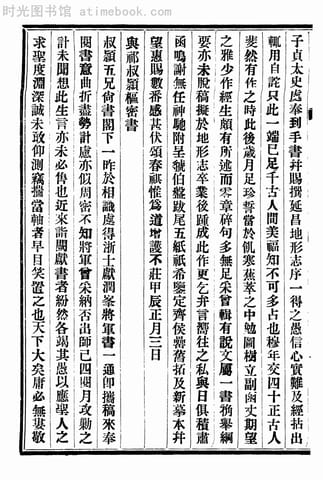 时光图书馆 atimebook.com
子貞太史處奉到手書幷賜撰延昌地形志序一得之愚信心實難及經拈出
輒用自詫只此一端已足千古人間美福知不可多占也穆年交四十正古人
斐然有作之時此後歲月足珍當於飢寒蕉萃之中勉圖樹立副函丈期望
之雅少作經生頗有所述而零章碎句多無足采曾輯有說文屬一書粗舉綱
要亦未脫稿擬於地形志卒業後踵成此作更乞弁言嚮往之私與日俱積肅
函鳴謝無任神馳附呈虢伯盤跋尾五紙祇希鑒定齊侯罍舊拓及新摹本幷
望惠賜數番感甚伏頌春祺惟爲道增護不莊甲辰正月三日
與祁叔潁樞密書
叔潁五兄尙書閣下一昨於相識處得浙士獻潤峯將軍書一通卽攜稿來奉
閱書意曲折盡勢計慮亦似周密不知將軍曾采納否出師已四閱月攻勦之
計未聞想此生言亦未必售也近來詣闕獻書者紛然各竭其愚以應聖人之
求聖度淵深誠未敢仰測竊揣當軸者早目笑置之也天下大矣庸必無婁敬